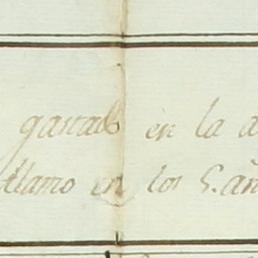 gastado en la a
llamo en los 5. añ